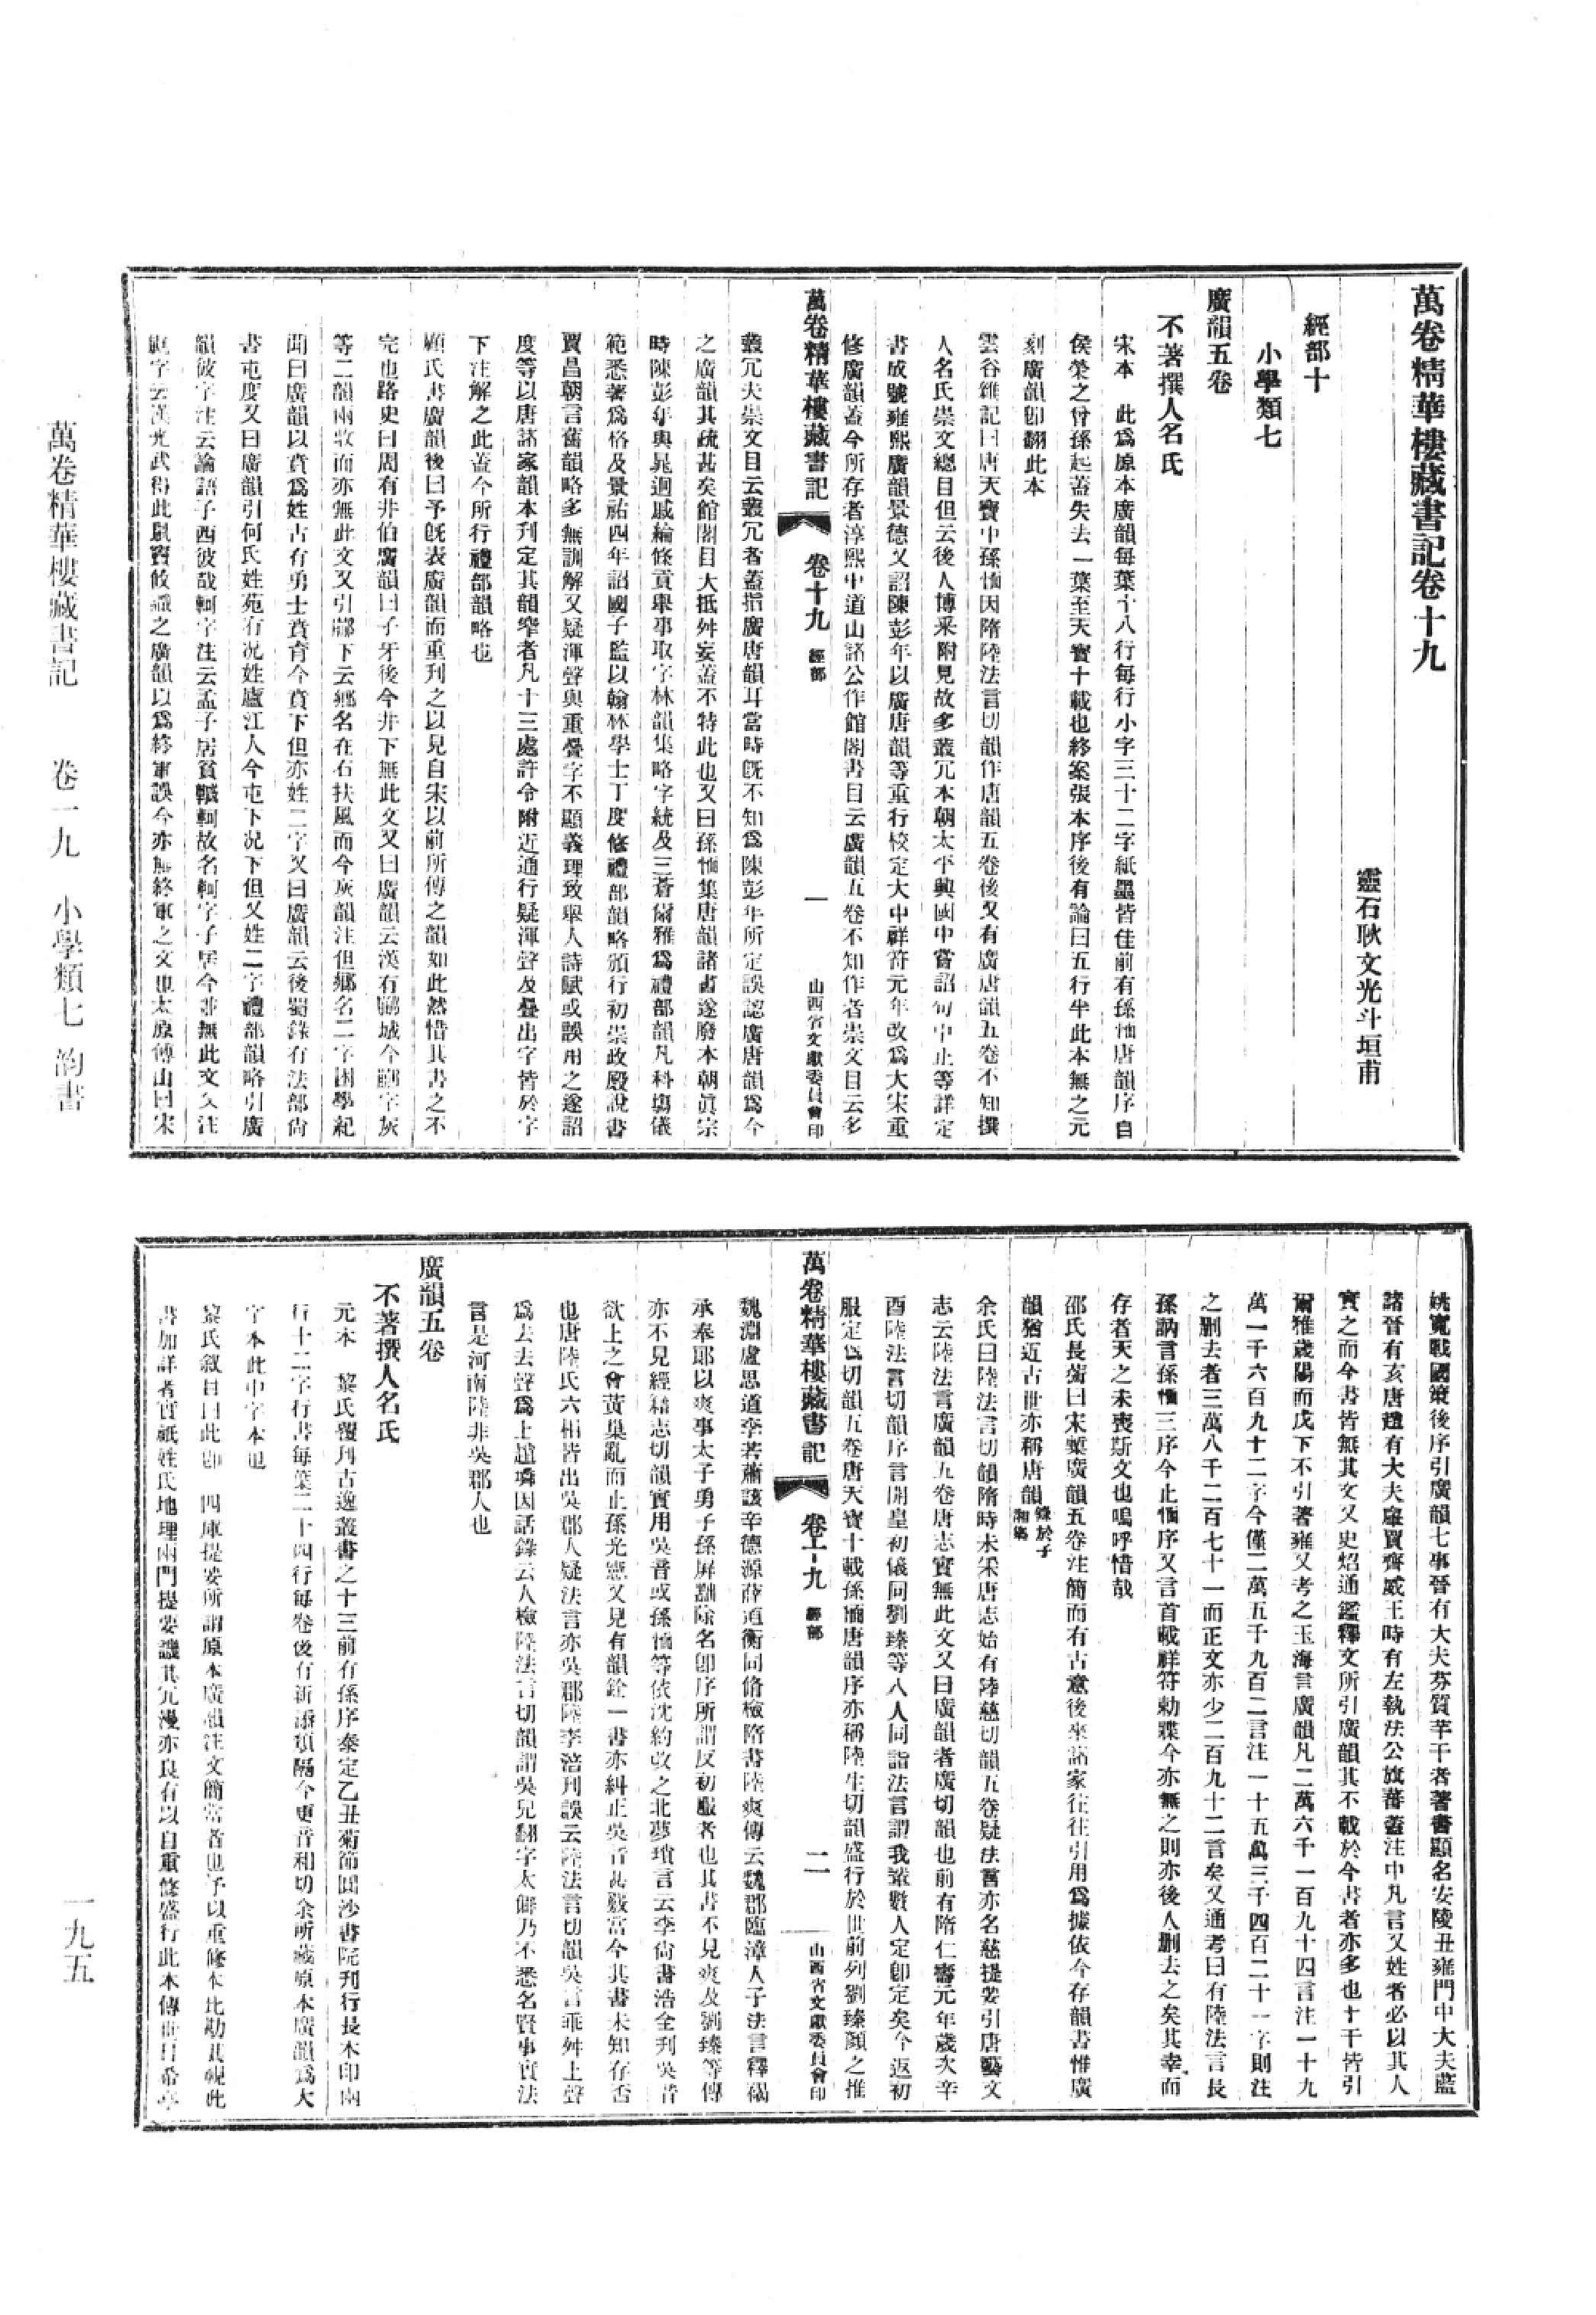 萬卷精華樓藏書記卷十九
靈石耿文光斗垣甫
經部十
小學類七
廣韻五卷
不著撰人名氏
宋本　此爲原本廣韻每葉十八行每行小字三十二字紙墨皆佳前有孫愐唐韻序自
侯榮之曾孫起蓋失去一葉至天寶十載也終案張本序後有論曰五行半此本無之元
刻廣韻卽翻此本
雲谷雜記曰唐天寶中孫愐因隋陸法言切韻作唐韻五卷後又有廣唐韻五卷不知撰
人名氏崇文總目但云後人博采附見故多叢冗本朝太平興國中嘗詔句中正等詳定
書成號雍熙廣韻景德又詔陳彭年以廣唐韻等重行校定大中祥符元年改爲大宋重
修廣韻蓋今所存者淳熙中道山諸公作館閣書目云廣韻五卷不知作者崇文目云多
萬卷精華樓藏書記　卷十九　經部　一　山西省文獻委員會印
叢冗夫崇文目云叢冗者蓋指廣唐韻耳當時既不知爲陳彭年所定誤認廣唐韻爲今
之廣韻其疏甚矣館閣目大抵舛妄蓋不特此也又曰孫愐集唐韻諸書遂廢本朝眞宗
時陳彭年與晁迥戚綸條貢舉事取字林韻集略字統及三蒼爾雅爲禮部韻凡科場儀
範悉著爲格及景祐四年詔國子監以翰林學士丁度修禮部韻略頒行初崇政殿說書
賈昌朝言舊韻略多無訓解又疑渾聲與重疊字不顯義理致舉人詩賦或誤用之遂詔
度等以唐諸家韻本刊定其韻窄者凡十三處許令附近通行疑渾聲及疊出字皆於字
下注解之此蓋今所行禮部韻略也
顧氏書廣韻後曰予既表廣韻而重刊之以見自宋以前所傳之韻如此然惜其書之不
完也路史曰周有井伯廣韻曰子牙後今井下無此文又曰廣韻云漢有　城今　字灰
等二韻兩收而亦無此文又引　下云鄉名在右扶風而今灰韻注但鄉名二字困學紀
聞曰廣韻以賁爲姓古有勇士賁育今賁下但亦姓二字又曰廣韻云後蜀錄有法部尚
書屯度又曰廣韻引何氏姓苑有況姓廬江人今屯下況下但又姓二字禮部韻略引廣
韻彼字注云論語子西彼哉軻字注云孟子居貧轗軻故名軻字子居今並無此文又注
字云漢光武得此鼠竇攸識之廣韻以爲終軍誤今亦無終軍之文也太原傅山曰宋
姚寬戰國策後序引廣韻七事晉有大夫芬質芊干者著書顯名安陵丑雍門中大夫藍
諸晉有亥唐趙有大夫　賈齊威王時有左執法公旗蕃蓋注中凡言又姓者必以其人
實之而今書皆無其文又史炤通鑑釋文所引廣韻其不載於今書者亦多也十干皆引
爾雅歲陽而戊下不引著雍又考之玉海言廣韻凡二萬六千一百九十四言注一十九
萬一千六百九十二字今僅二萬五千九百二言注一十五萬三千四百二十一字則注
之删去者三萬八千二百七十一而正文亦少二百九十二言矣又通考曰有陸法言長
孫訥言孫愐三序今止愐序又言首載祥符勅牒今亦無之則亦後人删去之矣其幸而
存者天之未喪斯文也嗚呼惜哉
邵氏長蘅曰宋槧廣韻五卷注簡而有古意後來諸家往往引用爲據依今存韻書惟廣
韻猶近古世亦稱唐韻　錄於子湘集
余氏曰陸法言切韻隋時未采唐志始有陸慈切韻五卷疑法言亦名慈提要引唐藝文
志云陸法言廣韻五卷唐志實無此文又曰廣韻者廣切韻也前有隋仁壽元年歲次辛
酉陸法言切韻序言開皇初儀同劉臻等八人同詣法言謂我輩數人定卽定矣今返初
服定爲切韻五卷唐天寶十載孫愐唐韻序亦稱陸生切韻盛行於世前列劉臻顏之推
萬卷精華樓藏書記　卷十九　經部　二　山西省文獻委員會印
魏淵盧思道李若蕭該辛德源薛道衡同脩檢隋書陸爽傳云魏郡臨漳人子法言釋褐
承奉郎以爽事太子勇子孫屏黜除名卽序所謂反初服者也其書不見爽及劉臻等傳
亦不見經籍志切韻實用吳音或孫愐等依沈約改之北夢瑣言云李尚書浩全刋吳音
欲上之會黃巢亂而止孫光憲又見有韻銓一書亦糾正吳音甚覈當今其書未知存否
也唐陸氏六相皆出吳郡人疑法言亦吳郡陸李涪刋誤云陸法言切韻吳言乖舛上聲
爲去去聲爲上趙璘因話錄云人檢陸法言切韻謂吳兒翻字太僻乃不悉名賢事實法
言是河南陸非吳郡人也
廣韻五卷
不著撰人名氏
元本　黎氏覆刋古逸叢書之十三前有孫序泰定乙丑菊節圓沙書院刋行長木印兩
行十二字行書每葉二十四行每卷後有新添類隔今更音和切余所藏原本廣韻爲大
字本此中字本也
黎氏敘目曰此卽　四庫提要所謂原本廣韻注文簡當者也予以重修本比勘其視此
書加詳者實祇姓氏地理兩門提要譏其冗漫亦良有以自重修盛行此本傳世日希
萬卷精華樓藏書記　卷一九　小學類七　韵書
一九五